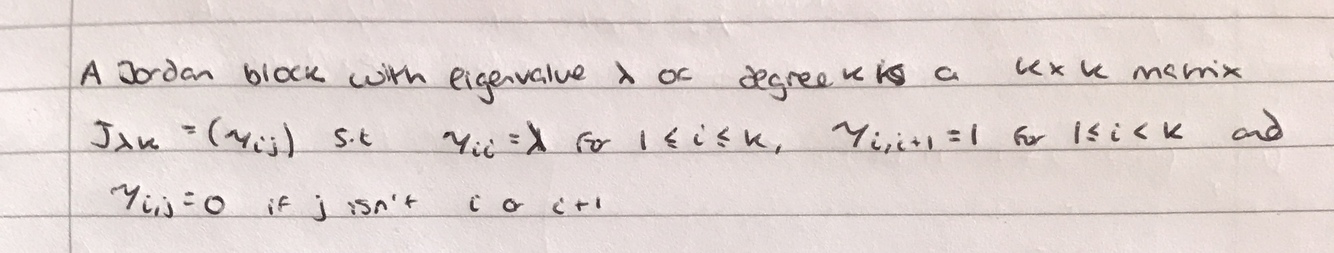 A Jordan block with eigenvalue λ of degree k is a k×k matrix
Jλk = (γij) s.t γii = λ for 1 ≤ i ≤ k, γi,i+1 = 1 for 1 ≤ i < k and
γi,j = 0 if j isn't i or i+1